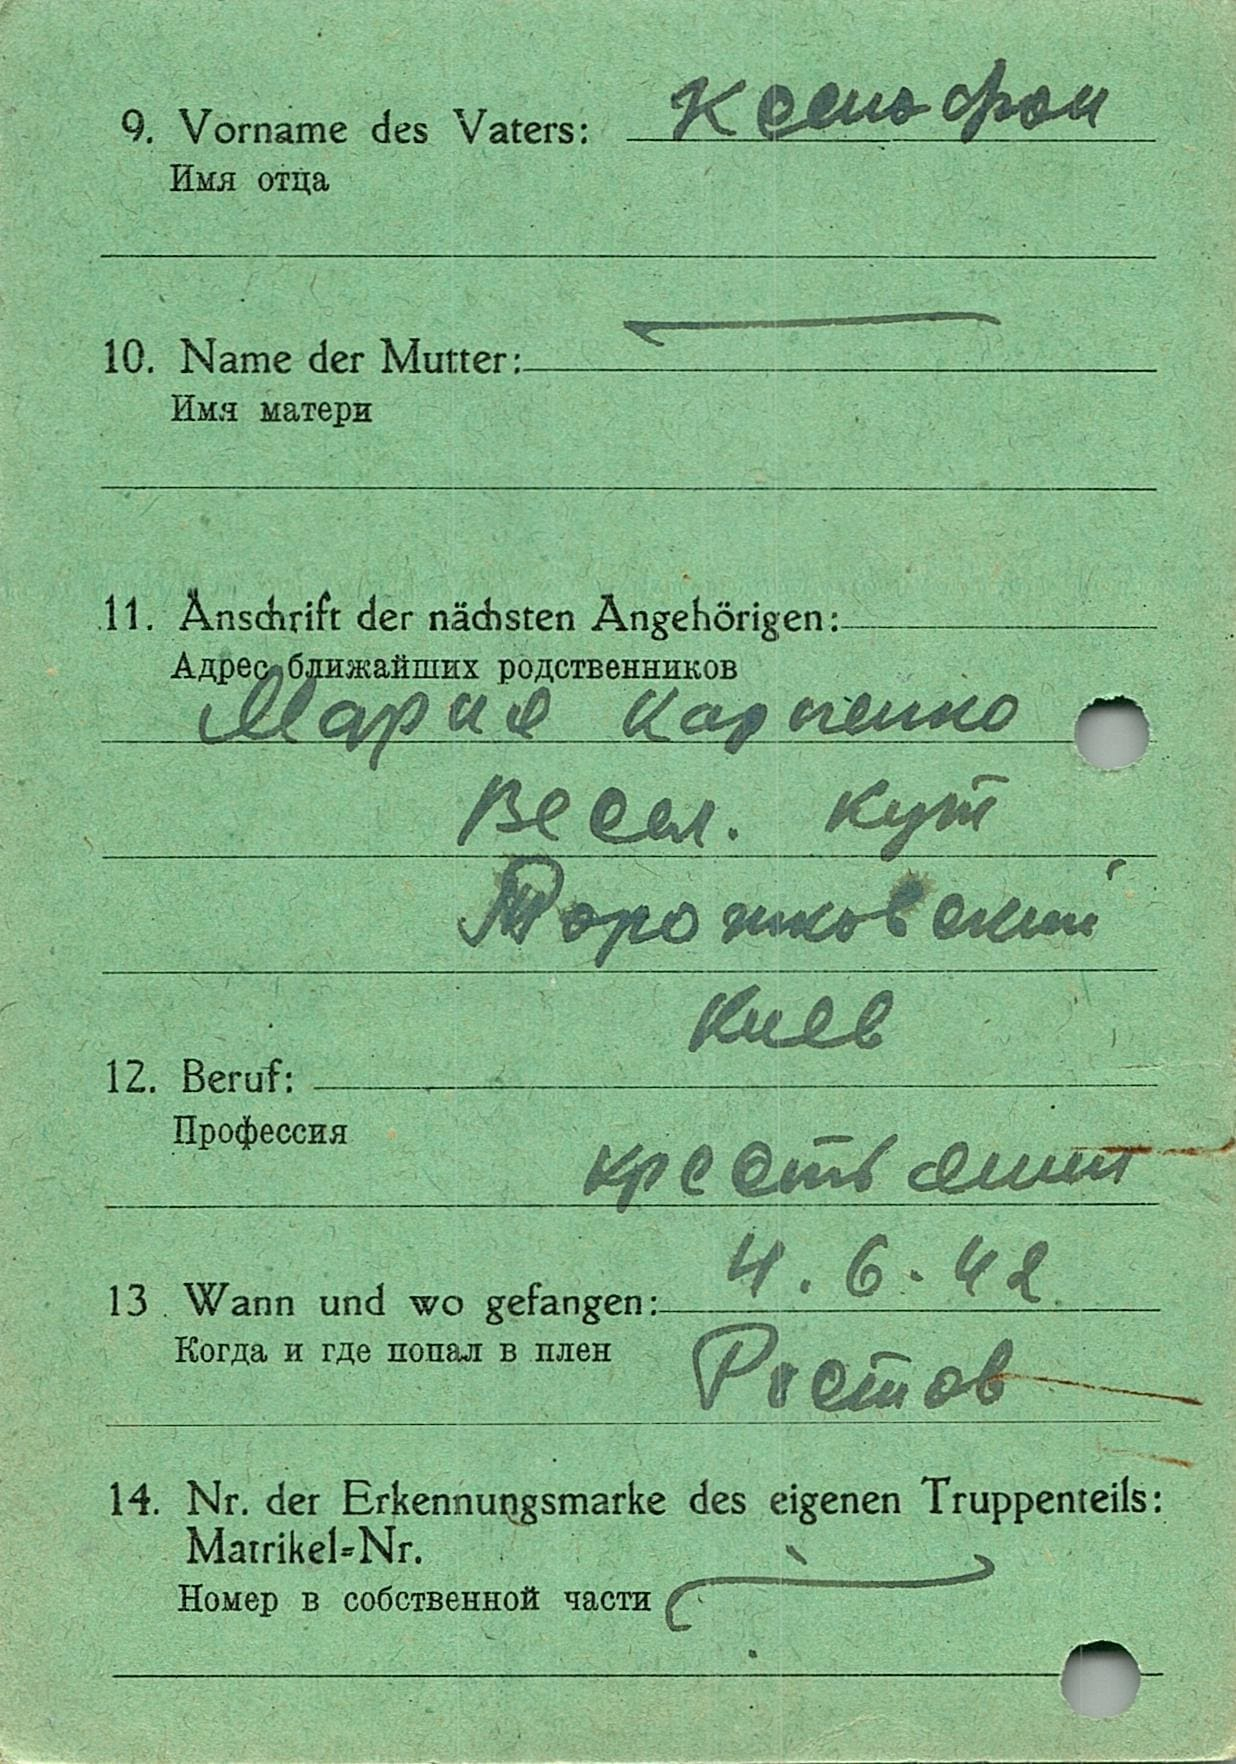 9. Vorname des Vaters: Ксенофон
Имя отца
10. Name der Mutter:
Имя матери
11. Anschrift der nächsten Angehörigen:
Адрес ближайших родственников
Мария Карпенко
Весел. Кут
Киев
12. Beruf:
Профессия
крестьянин
4.6.42
13. Wann und wo gefangen:
Когда и где попал в плен
Ростов
14. Nr. der Erkennungsmarke des eigenen Truppenteils:
Matrikel=Nr.
Номер в собственной части